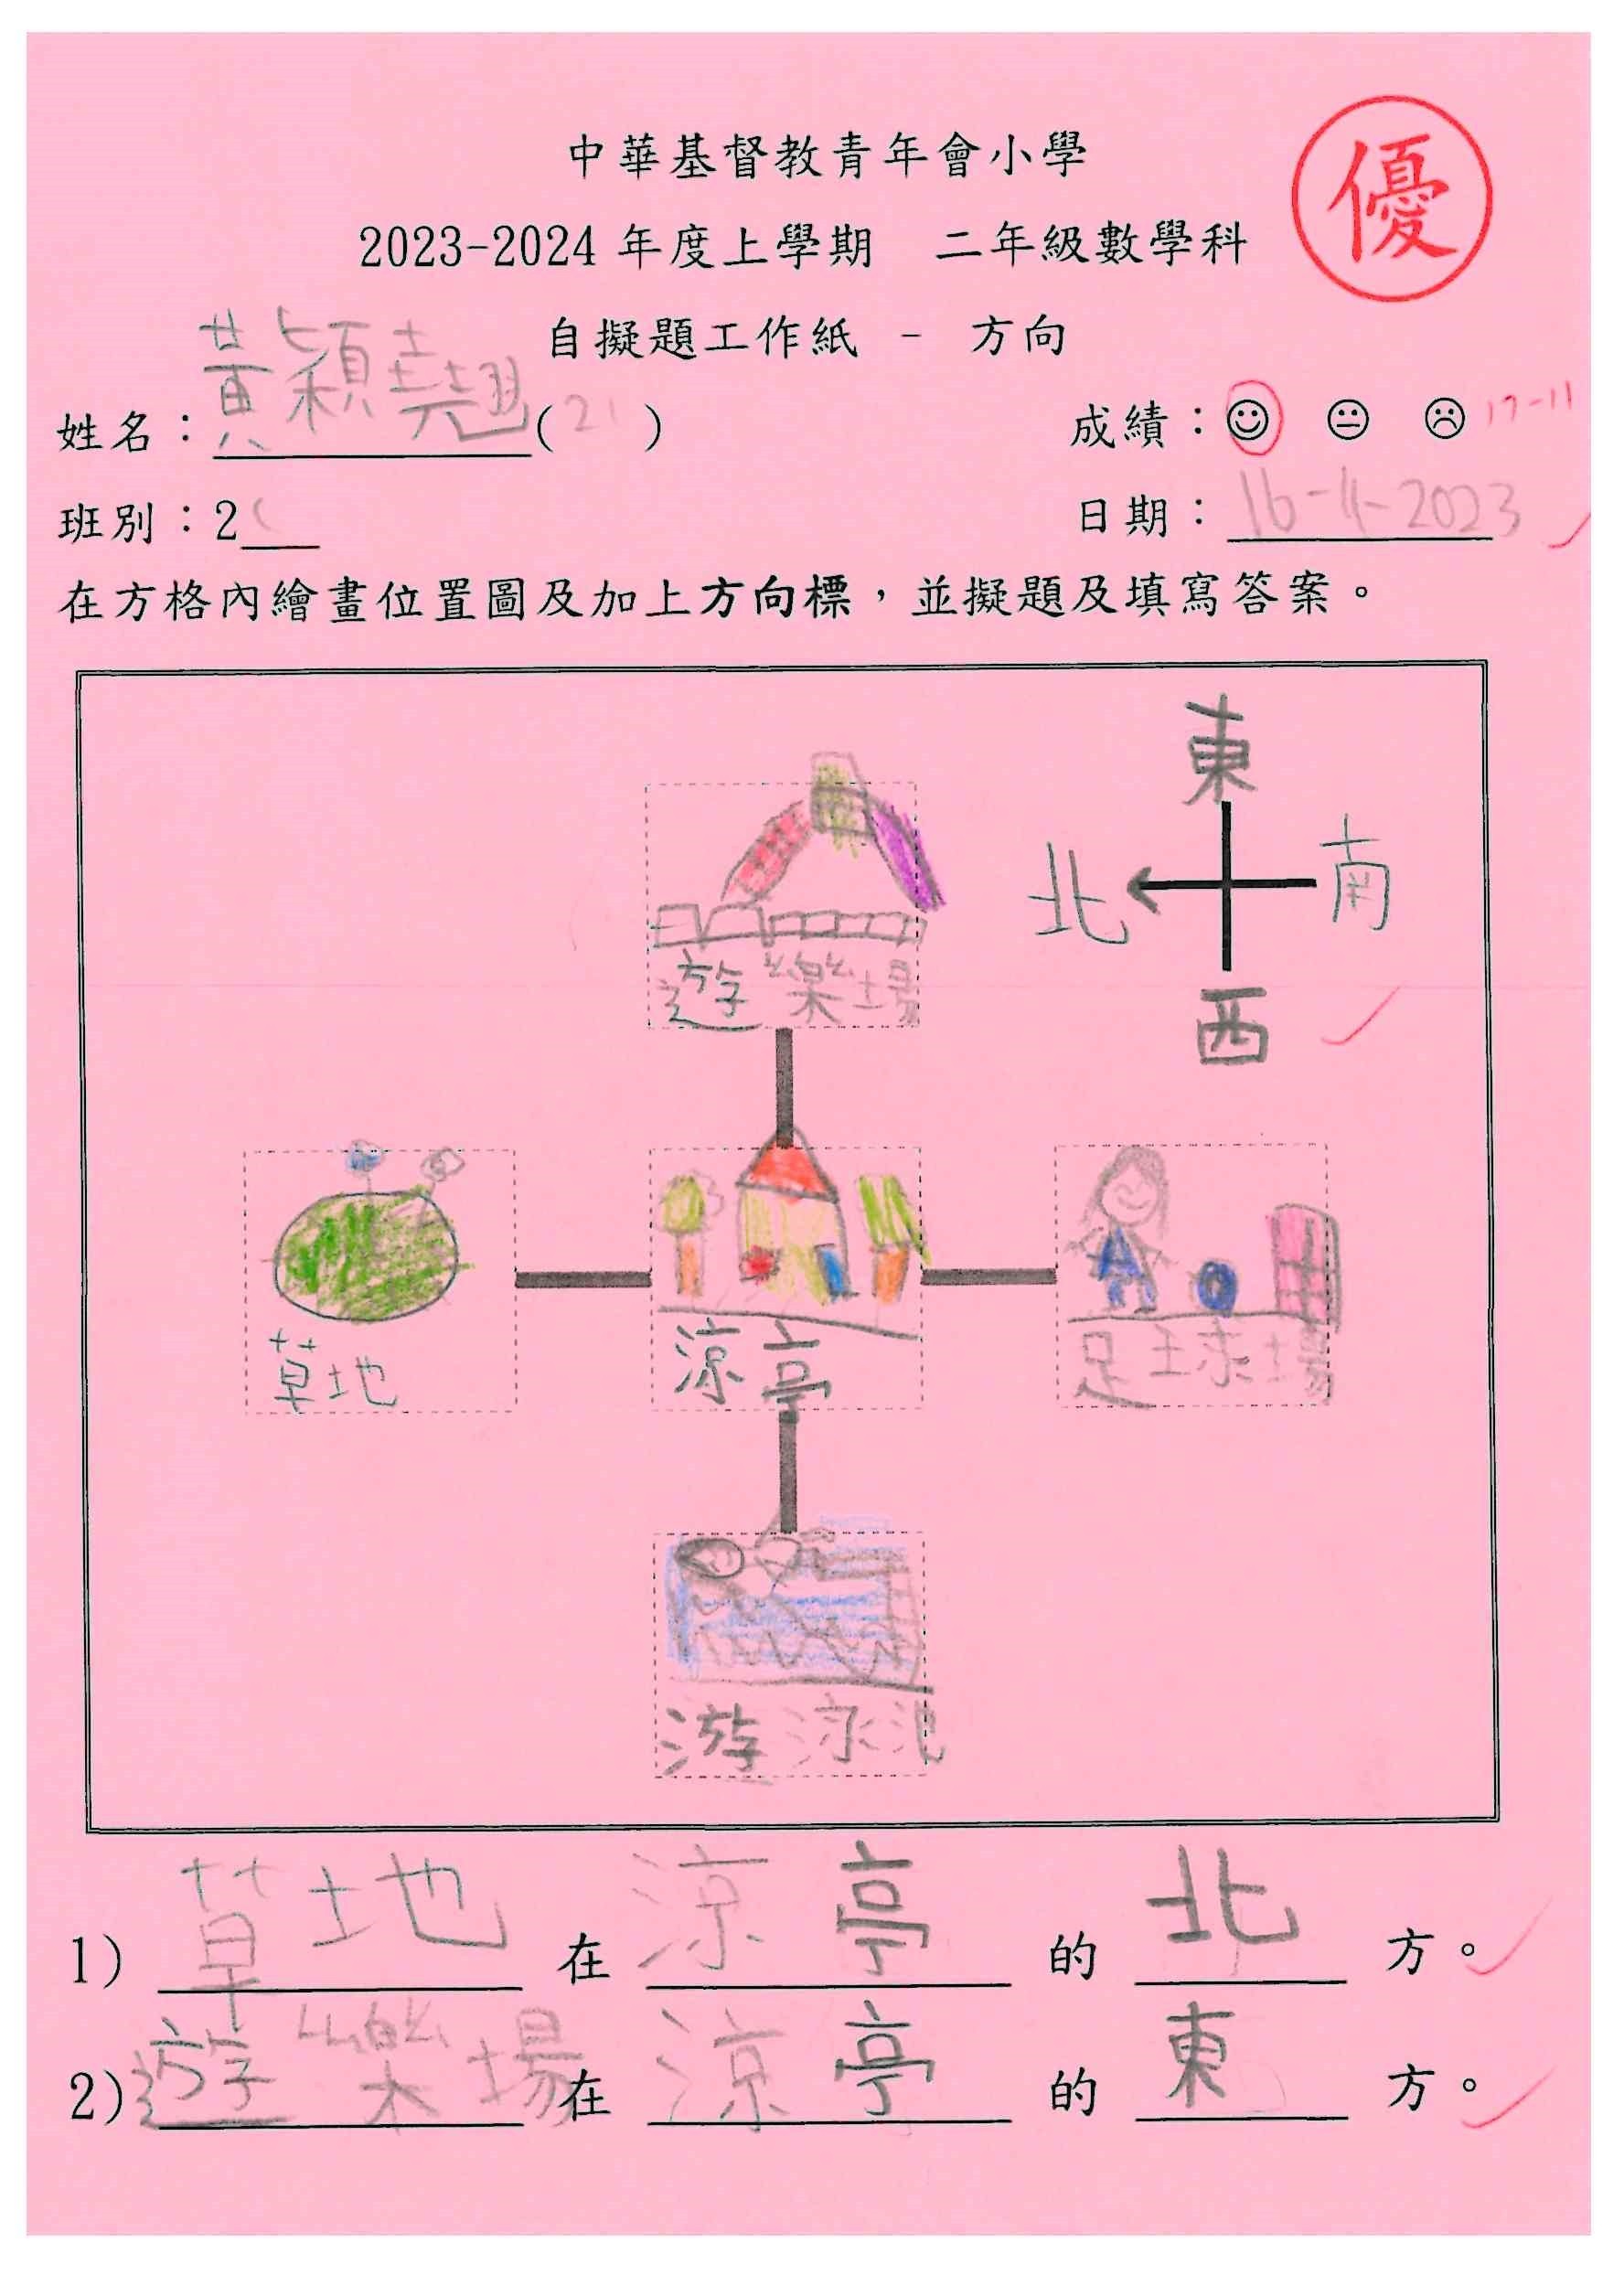 中華基督教青年會小學
優
2023-2024 年度上學期 二年級數學科
自擬題工作紙 - 方向
姓名：黃穎翹(21)
成績：☺ 😐 ☹ 17-11
班別：2
日期：16-11-2023
在方格內繪畫位置圖及加上方向標，並擬題及填寫答案。
東
北 南
西
遊樂場
草地 涼亭 足球場
游泳池
1) 草地 在 涼亭 的 北 方。
2) 遊樂場 在 涼亭 的 東 方。